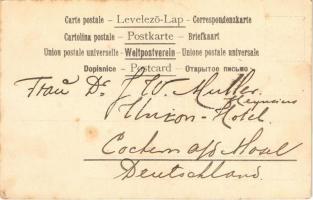 Carte postale - Levelező-Lap - Correspondenzkarte
Cartolina postale - Postkarte - Briefkaart
Union postale universelle - Weltpostverein - Unione postale universale
Dopisnice - Postcard - Открытое письмо
Frau Dr J. W. Muller
Union-Hotel
Cochem a/d Mosel
Deutschland.